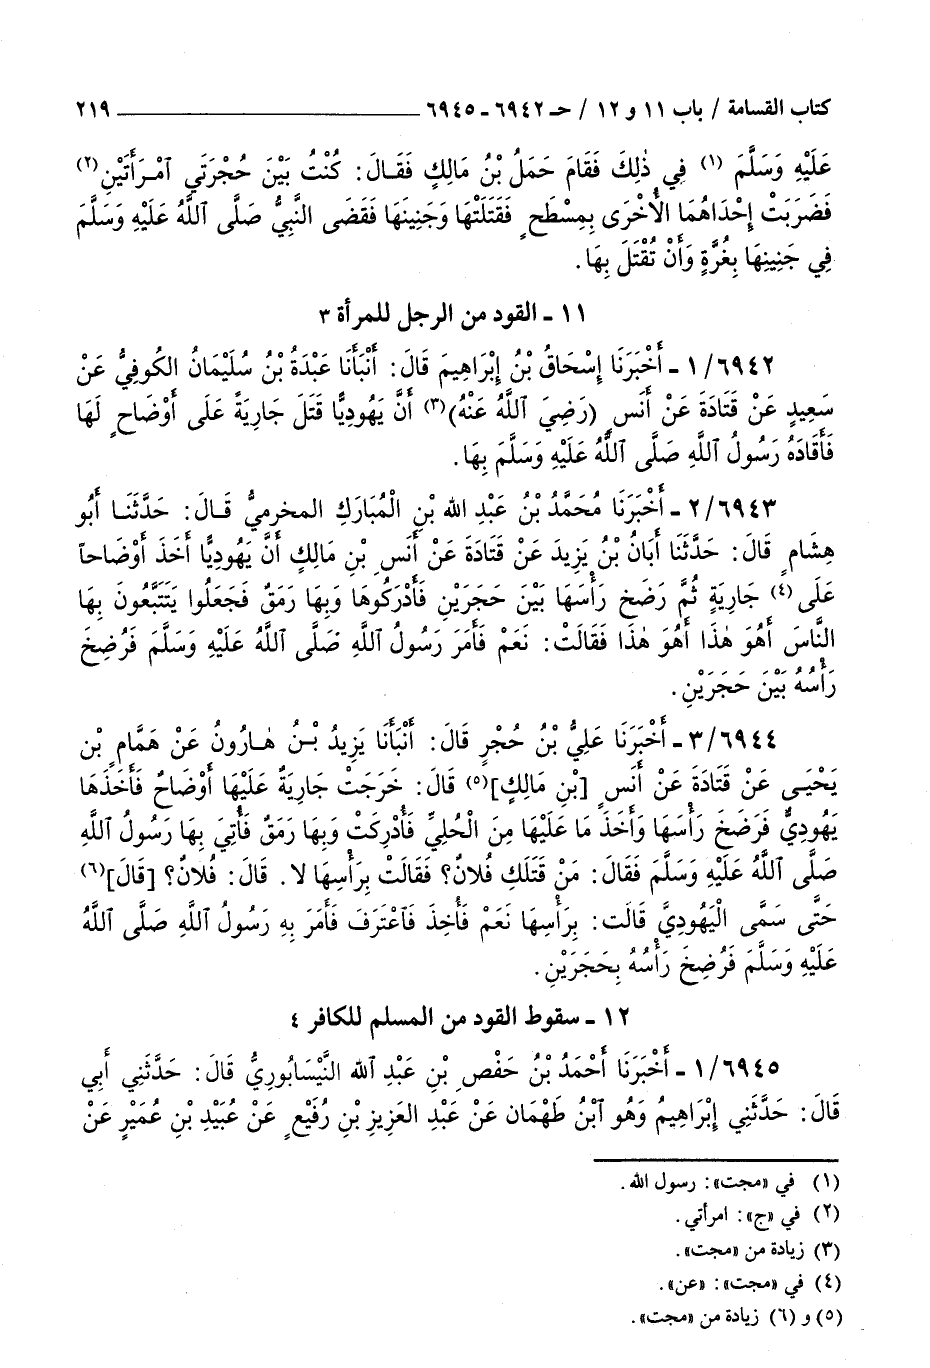 كتاب القسامة / باب ١١ و ١٢ / حـ ٦٩٤٢ - ٦٩٤٥ ٢١٩
عَلَيْهِ وَسَلَّمَ (١) فِي ذٰلِكَ فَقَامَ حَمَلُ بْنُ مَالِكٍ فَقَـالَ: كُنْتُ بَيْنَ حُجْرَتَي ٱمْـرَأَتَيْنِ(٢)
فَضَرَبَتْ إِحْدَاهُمَا الْأُخْرَى بِمِسْطَحٍ فَقَتَلَتْهَا وَجَنِينَهَا فَقَضَى النَّبِيُّ صَلَّى ٱللَّهُ عَلَيْهِ وَسَلَّمَ
فِي جَنِينِهَا بِغُرَّةٍ وَأَنْ تُقْتَلَ بِهَا.
١١ - القود من الرجل للمرأة ٣
١/٦٩٤٢ - أَخْبَرَنَا إِسْحَاقُ بْنُ إِبْرَاهِيمَ قَالَ: أَنْبَأَنَا عَبْدَةُ بْنُ سُلَيْمَانُ الكُوفِيُّ عَنْ
سَعِيدٍ عَنْ قَتَادَةَ عَنْ أَنَسٍ (رَضِيَ ٱللَّهُ عَنْهُ)(٣) أَنَّ يَهُودِيًّا قَتَلَ جَارِيَةً عَلَى أَوْضَاحٍ لَهَا
فَأَقَادَهُ رَسُولُ ٱللَّهِ صَلَّى ٱللَّهُ عَلَيْهِ وَسَلَّمَ بِهَا.
٢/٦٩٤٣ - أَخْبَرَنَا مُحَمَّدُ بْنُ عَبْدِ الله بْنِ الْمُبَارَكِ المخرميُّ قَـالَ: حَدَّثَنَـا أَبُو
هِشَامٍ قَالَ: حَدَّثَنَا أَبَانُ بْنُ يَزِيدَ عَنْ قَتَادَةَ عَنْ أَنَسِ بْنِ مَالِكٍ أَنَّ يَهُودِيًّا أَخَذَ أَوْضَاحاً
عَلَى(٤) جَارِيَةٍ ثُمَّ رَضَخَ رَأْسَهَا بَيْنَ حَجَرَيْنِ فَأَدْرَكُوهَا وَبِهَا رَمَقٌ فَجَعَلُوا يَتَتَبَّعُونَ بِهَا
النَّاسَ أَهُوَ هٰذَا أَهُوَ هٰذَا فَقَالَتْ: نَعَمْ فَأَمَرَ رَسُولُ ٱللَّهِ صَلَّى ٱللَّهُ عَلَيْهِ وَسَلَّمَ فَرُضِخَ
رَأْسُهُ بَيْنَ حَجَرَيْنِ.
٣/٦٩٤٤ - أَخْبَرَنَا عَلِيُّ بْنُ حُجْرٍ قَالَ: أَنْبَأَنَا يَزِيدُ بْـنُ هَـارُونُ عَنْ هَمَّامٍ بْنِ
يَحْيَـى عَنْ قَتَادَةَ عَنْ أَنَسٍ [بْنِ مَالِكٍ](٥) قَالَ: خَرَجَتْ جَارِيَةٌ عَلَيْهَا أَوْضَاحٌ فَأَخَذَهَا
يَهُودِيٌّ فَرَضَخَ رَأْسَهَا وَأَخَذَ مَا عَلَيْهَا مِنَ الْحُلِيِّ فَأُدْرِكَتْ وَبِهَا رَمَقٌ فَأُتِيَ بِهَا رَسُولُ ٱللَّهِ
صَلَّى ٱللَّهُ عَلَيْهِ وَسَلَّمَ فَقَالَ: مَنْ قَتَلَكِ فُلانٌ؟ فَقَالَتْ بِرَأْسِهَا لا. قَالَ: فُلانٌ؟ [قَالَ](٦)
حَتَّى سَمَّى الْيَهُودِيَّ قَالَت: بِرَأْسِهَا نَعَمْ فَأُخِذَ فَٱعْتَرَفَ فَأَمَرَ بِهِ رَسُولُ ٱللَّهِ صَلَّى ٱللَّهُ
عَلَيْهِ وَسَلَّمَ فَرُضِخَ رَأْسُهُ بِحَجَرَيْنِ.
١٢ - سقوط القود من المسلم للكافر ٤
١/٦٩٤٥ - أَخْبَرَنَا أَحْمَدُ بْنُ حَفْصِ بْنِ عَبْدِ ٱلله النَّيْسَابُورِيُّ قَالَ: حَدَّثَنِي أَبِي
قَالَ: حَدَّثَنِي إِبْرَاهِيمُ وَهُو ٱبْنُ طَهْمَان عَنْ عَبْدِ العَزِيزِ بْنِ رُفَيْعٍ عَنْ عُبَيْدِ بْنِ عُمَيْرٍ عَنْ
(١) في «مجت»: رسول الله.
(٢) في «ج»: امرأتي.
(٣) زيادة من «مجت».
(٤) في «مجت»: «عن».
(٥) و (٦) زيادة من «مجت».